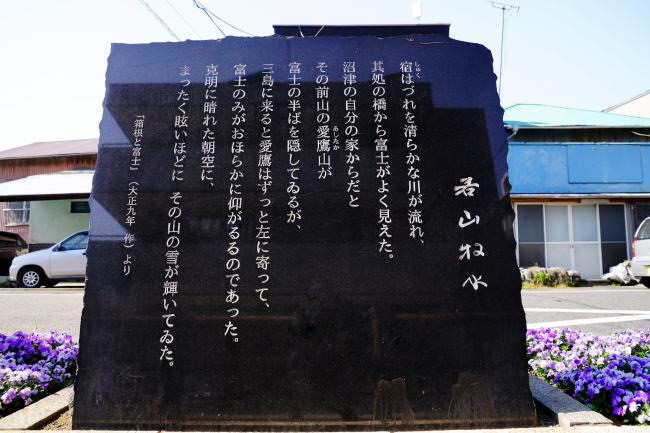 若山牧水
宿はづれを清らかな川が流れ、
しゅく
其処の橋から富士がよく見えた。
沼津の自分の家からだと
その前山の愛鷹山が
あしたか
富士の半ばを隠してゐるが、
三島に来ると愛鷹はずっと左に寄って、
富士のみがおほらかに仰がるるのであった。
克明に晴れた朝空に、
まったく眩いほどに その山の雪が輝いてゐた。
「箱根と富士」(大正九年 作)より